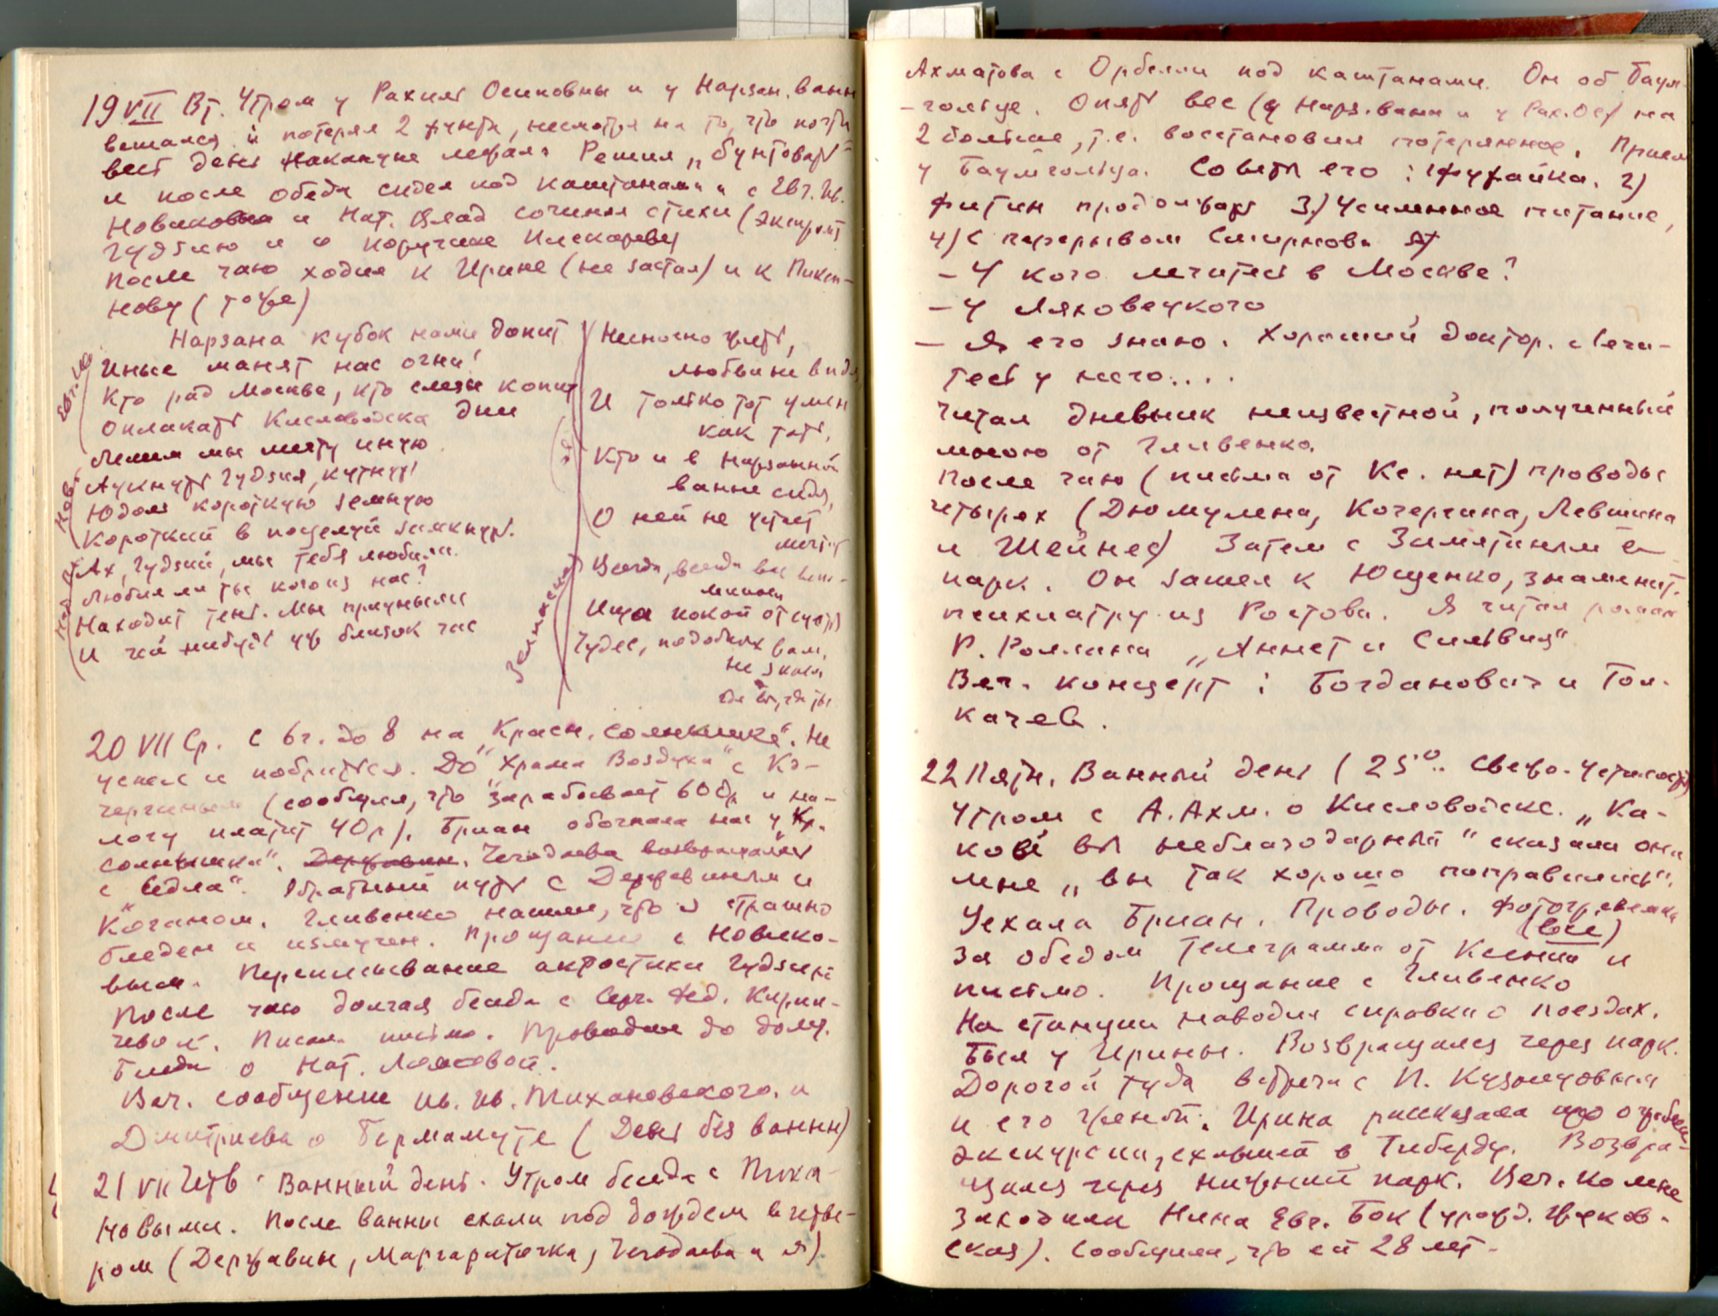 19 VII Вт. Утром у Рахили Осиповны и у Нарзан. ванн
вешался и потерял 2 фунта, несмотря на то, что почти
весь день накануне лежал. Решил „бунтовать“
и после обеда сидел под каштанами и с Евг. Ив.
Новиковым и Нат. Влад сочинял стихи (экспромт
Гудзию и о поручике Пискареве)
После чаю ходил к Ирине (не застал) и к Пикса-
нову (тоже)
Нарзана кубок нами допит
Иные манят нас огни!
Кто рад Москве, кто слезы копит
Оплакать Кисловодска дни
Лелим мы мечту иную
Аукнуть Гудзия, кутнуть!
Юдоль короткую земную
Короткий в поцелуй замкнуть.
Ах, Гудзий, мы тебя любили
Любил ли ты кого из нас?
Находит тень. Мы приуныли
И чей нибудь уж близок час
Евг. Ив.
Нов.
Несносно жить,
любви не видя
И только тот умен
как тот,
Кто и в нарзанной
ванне сидя,
О ней не чтит
мечту
Всегда, всегда
Ища покой от суеты
Чудес, подобных вам,
не зная
где вы, где ты
20 VII Ср. С 6 ч. до 8 на „Красн. солнышке“. Не
успел и побриться. До „Храма Воздуха“ с Ко-
чергиным (сообщил, что зарабатывает 600р и на-
логу платит 40р). Бриан обогнала нас у „Кр.
солнышка“. Державин. Чегодаева возвращалась
с „Седла“. Обратный путь с Державиным и
Коганом. Гливенко нашли, что я страшно
бледен и измучен. Прощание с Новико-
вым. Переписывание акростиха Гудзию
После чаю долгая беседа с Серг. Фед. Кирпи-
чевой. Писал письмо. Проводил до дому.
Беседа о Нат.
Веч. сообщение Ив. Ив. Тихановского и
Дмитриева о Бермамуте (День без ванны)
21 VII Четв. Ванный день. Утром беседа с Пикса-
новыми. После ванны ехали под дождем вчетве-
ром (Державин, Маргариточка, Чегодаева и я).
Ахматова с Орбели под каштанами. Он об Баум-
гольце. Опять вес (у Нарз. ванн и у Рах. Ос) на
2 больше, т.е. восстановил потерянное. Прием
у Баумгольца. Советы его: 1 фуфайка. 2)
Фитин продолжать 3) Усиленное питание,
4) С перерывом Смирнова
— У кого лечитесь в Москве?
— У Ляховецкого
— Я его знаю. Хороший доктор. Лечи-
тесь у него....
Читал дневник неизвестной, полученный
мною от Гливенко.
После чаю (письма от Кс. нет) проводы
четырех (Дюмулена, Кочергина, Левшина
и Шейнес) Затем с Замятиным в
парк. Он зашел к Ющенко, знаменит.
психиатру из Ростова. Я читал роман
Р. Роллана „Аннет и Сильвия“
Веч. концерт: Богданович и Тол-
качев.
22 Пятн. Ванный день (25°. Свежо. Чегодаева)
Утром с А. Ахм. о Кисловодске. „Ка-
кой вы неблагодарный“ сказала она
мне „вы так хорошо поправились“.
Уехала Бриан. Проводы. Фотогр. съемка
(все)
За обедом телеграмма от Ксении и
письмо. Прощание с Гливенко
На станции наводил справки о поездах.
Был у Ирины. Возвращался через парк.
Дорогой туда встреча с П. Кузнецовым
и его женой. Ирина рассказала про ограбление
экскурсии, ехавшей в Тиберду. Возвра-
щался через нижний парк. Веч. ко мне
заходила Нина Евг. Бок (урожд. Жуков-
ская). Сообщила, что ей 28 лет.